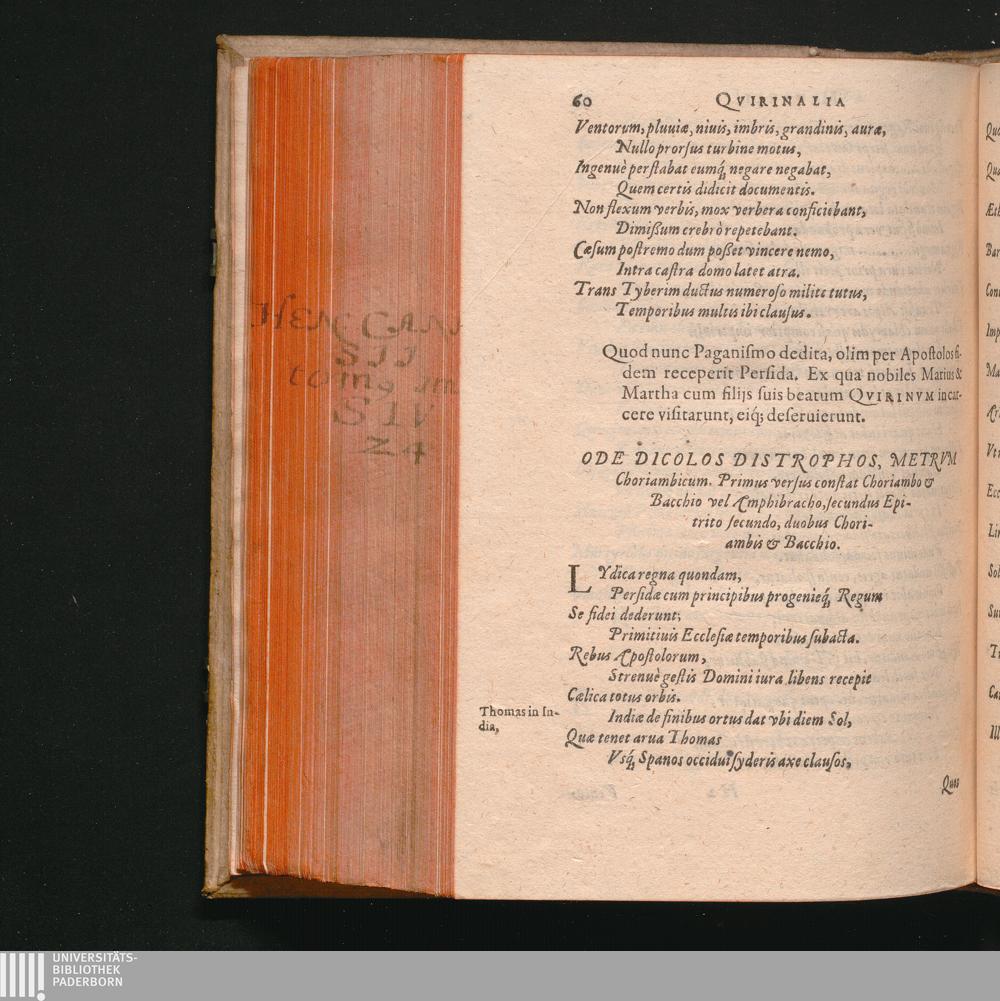 60 QVIRINALIA
Ventorum, pluuiæ, niuis, imbris, grandinis, auræ,
Nullo prorſus turbine motus,
Ingenuè perſtabat eumq́; negare negabat,
Quem certis didicit documentis.
Non flexum verbis, mox verbera conficiebant,
Dimißum crebrò repetebant.
Cæſum poſtremo dum poßet vincere nemo,
Intra caſtra domo latet atra.
Trans Tyberim ductus numeroſo milite tutus,
Temporibus multis ibi clauſus.
Quod nunc Paganiſmo dedita, olim per Apoſtolos fi-
dem receperit Perſida. Ex qua nobiles Marius &
Martha cum filijs ſuis beatum QVIRINVM in car-
cere viſitarunt, eiq́; deſeruierunt.
ODE DICOLOS DISTROPHOS, METRVM
Choriambicum. Primus verſus conſtat Choriambo &
Bacchio vel Amphibracho, ſecundus Epi-
trito ſecundo, duobus Chori-
ambis & Bacchio.
LYdica regna quondam,
Perſidæ cum principibus progenieq́; Regum
Se fidei dederunt;
Primitiuis Eccleſiæ temporibus ſubacta.
Rebus Apoſtolorum,
Strenuè geſtis Domini iura libens recepit
Cælica totus orbis.
Thomas in In-
dia,
Indiæ de finibus ortus dat vbi diem Sol,
Quæ tenet arua Thomas
Vſq́; Spanos occidui ſyderis axe clauſos,
Quos
HENC CANI
SII
tomg im
SIV
24
Qua
Qua
Æth
Bar
Con
Imp
Ma
Ar
Vti
Ecc
Lin
Sol
Su
Ti
Ca
Ill
UNIVERSITÄTS-
BIBLIOTHEK
PADERBORN